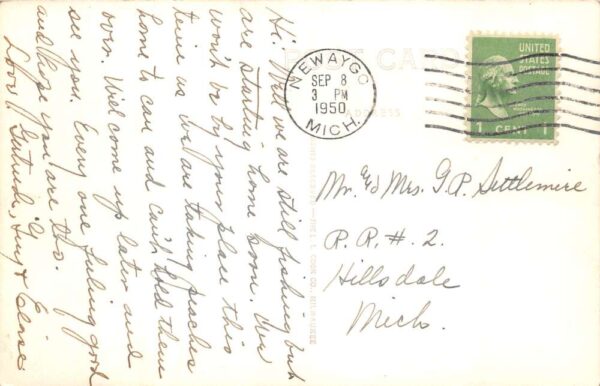 Hi. Well we are still fishing but
are starting home soon. We
won't be by your place this
time as we are taking peaches
home to can and can't hold them
over. Will come up later and
see you. Every one feeling good
and hope you are tho.
Love Gertrude, Guy &
POST CARD
ADDRESS
NEWAYGO
SEP 8
3 PM
1950
MICH.
UNITED
STATES
POSTAGE
1 CENT 1
Mr. & Mrs. G. P. Settlemire
R.R. # 2.
Hillsdale
Mich.